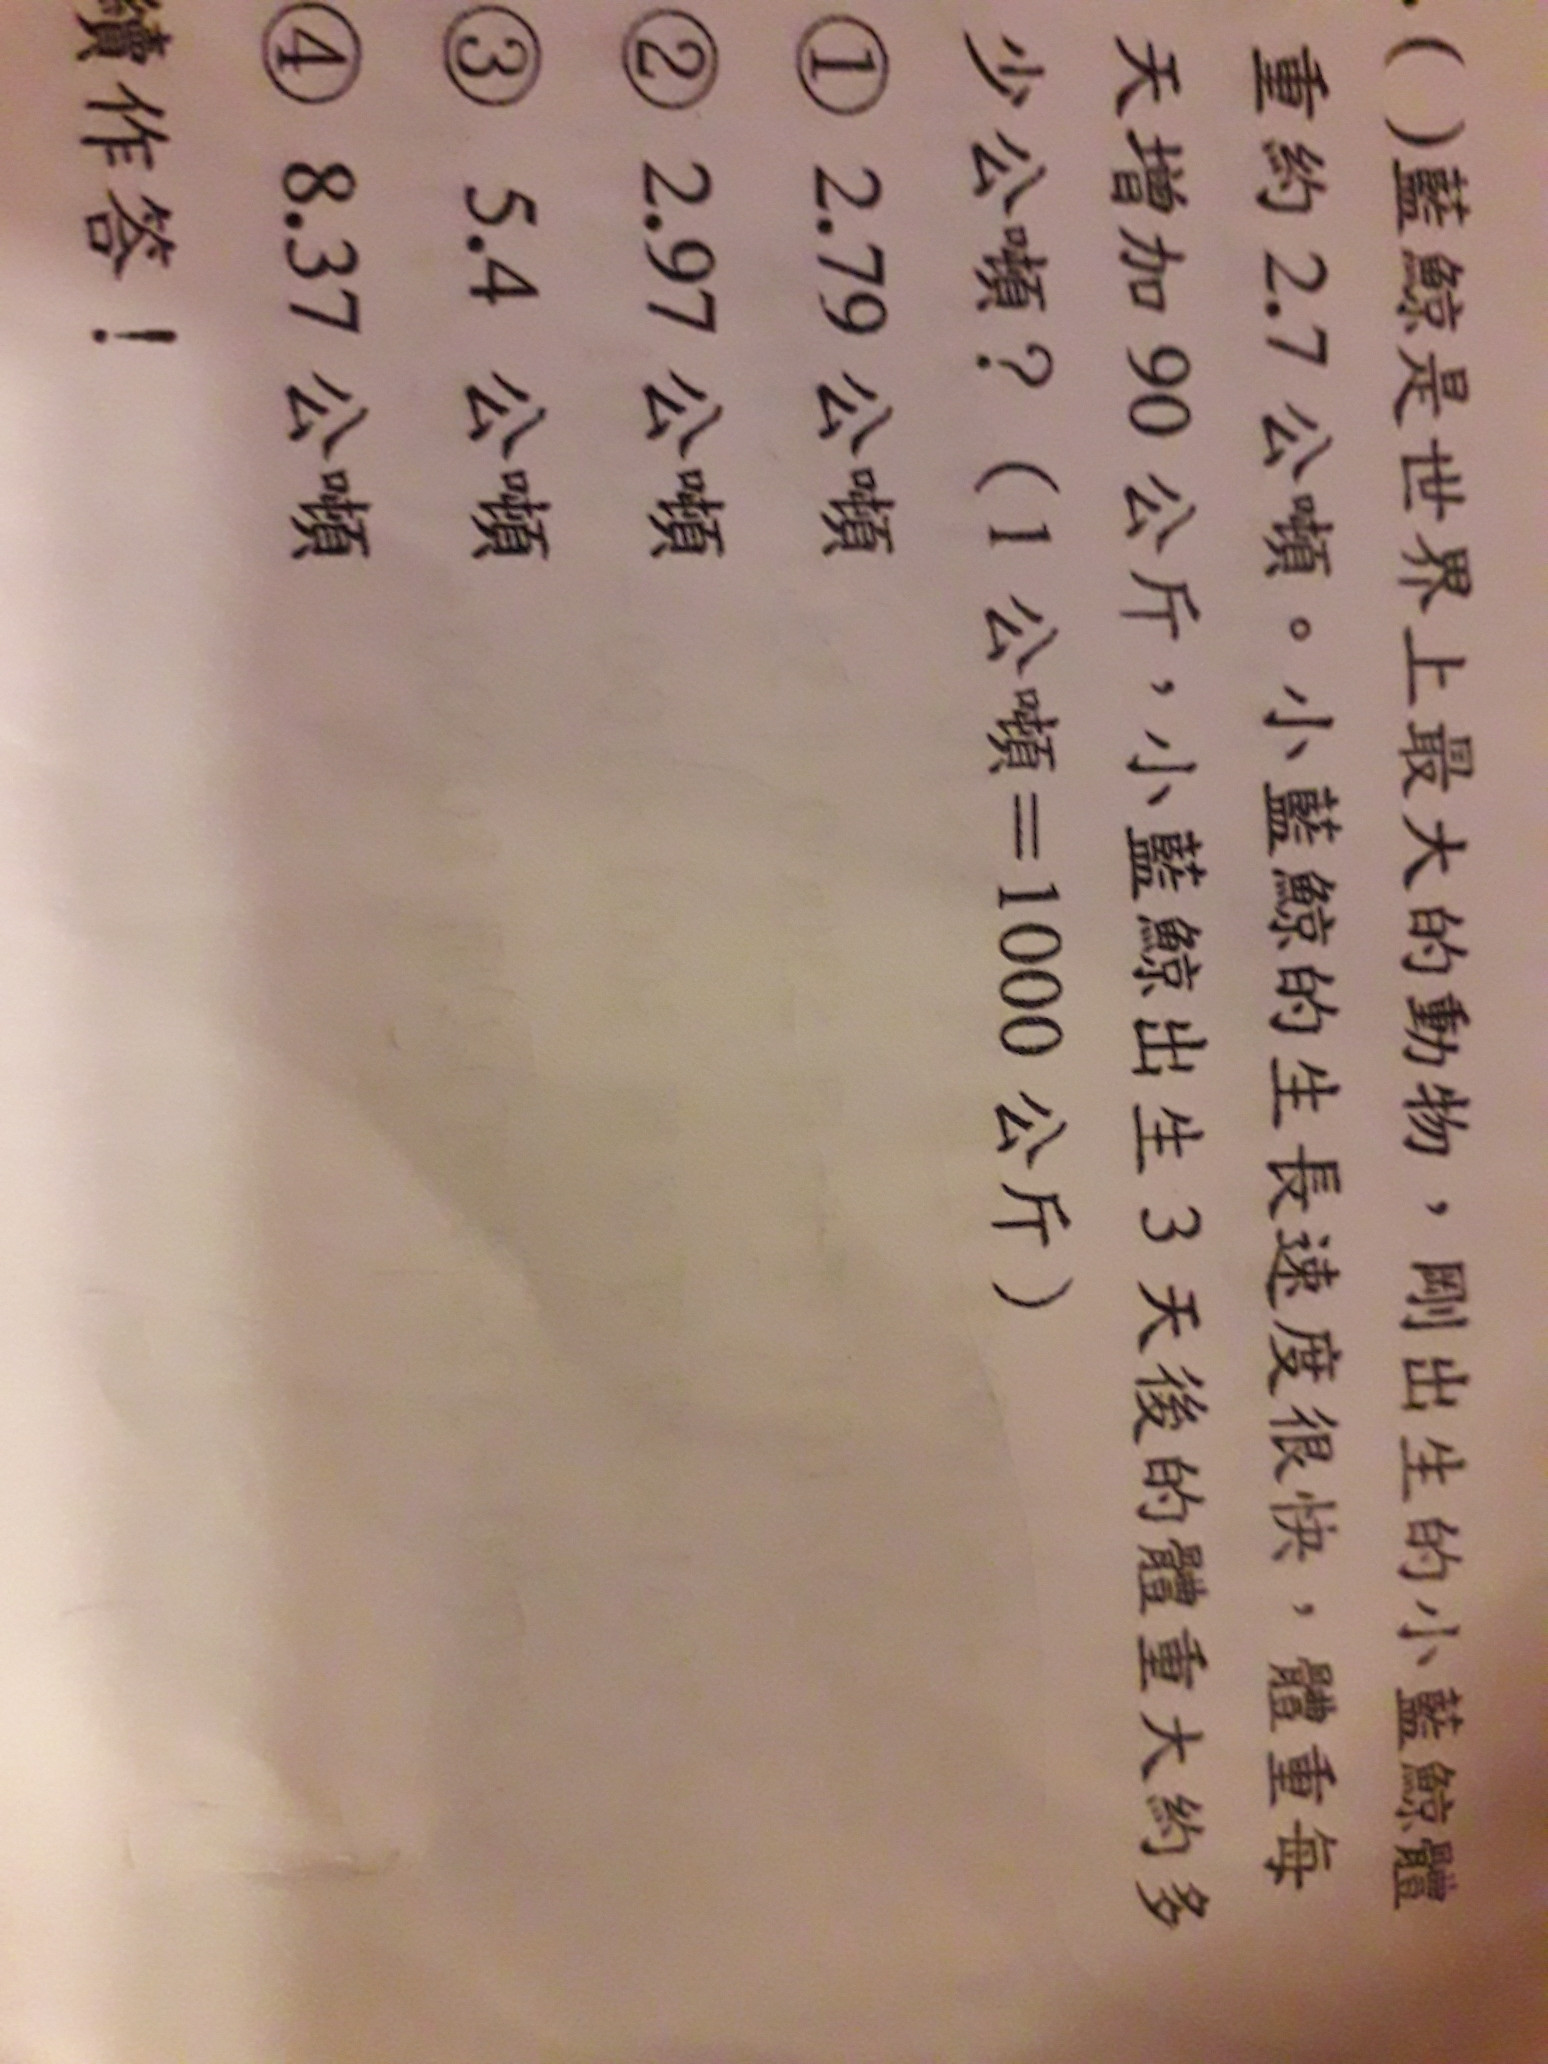 .( )藍鯨是世界上最大的動物，剛出生的小藍鯨體
重約 2.7 公噸。小藍鯨的生長速度很快，體重每
天增加 90 公斤，小藍鯨出生 3 天後的體重大約多
少公噸？（1 公噸＝1000 公斤）
① 2.79 公噸
② 2.97 公噸
③ 5.4 公噸
④ 8.37 公噸
續作答！